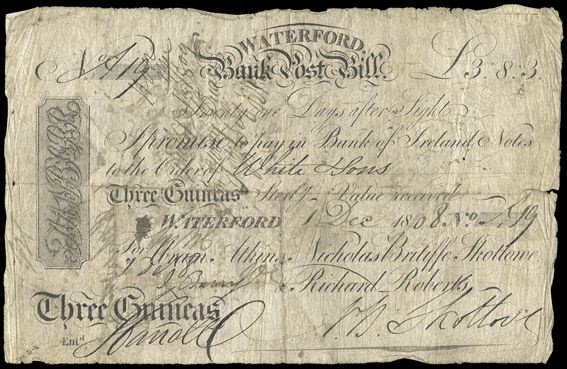 WATERFORD
No. 419 Bank Post Bill. £3:8:3.
Twenty one Days after Sight
I promise to pay in Bank of Ireland Notes
to the Order of White & Sons
Three Guineas Sterlg. Value received
WATERFORD 1 Dec 1808. No. 419
For Hyam Atkins, Nicholas Britiffe Skottowe
& Richard Roberts,
Three Guineas
Entd. N. B. Skottowe